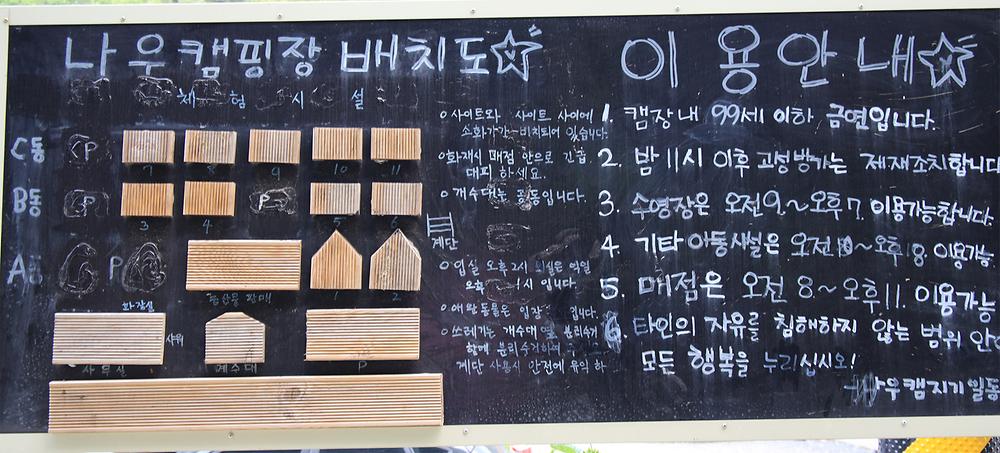 나우캠핑장 배치도
체험 시설
C동 P
7 8 9 10 11
B동 P P
3 4 5 6
계단
A동 P
1 2
화장실
샤워
사무실 개수대 P
o 사이트와 사이트 사이에
소화기가 비치되어 있습니다.
o 화재시 매점 안으로 긴급
대피 하세요.
o 개수대는 공동입니다.
o 입실 오후 2시 퇴실은 익일
입니다.
o 애완동물은
o 쓰레기는 개수대 옆 분리수거
함에 분리수거하여
계단 사용시 안전에 유의 하
이용안내
1. 캠장내 99세 이하 금연입니다.
2. 밤 11시 이후 고성방가는 제재조치합니다
3. 수영장은 오전9.~오후7. 이용가능합니다.
4. 기타 아동시설은 오전10~오후8. 이용가능
5. 매점은 오전 8~오후11. 이용가능
6. 타인의 자유를 침해하지 않는 범위 안
모든 행복을 누리십시오!
나우캠지기 일동